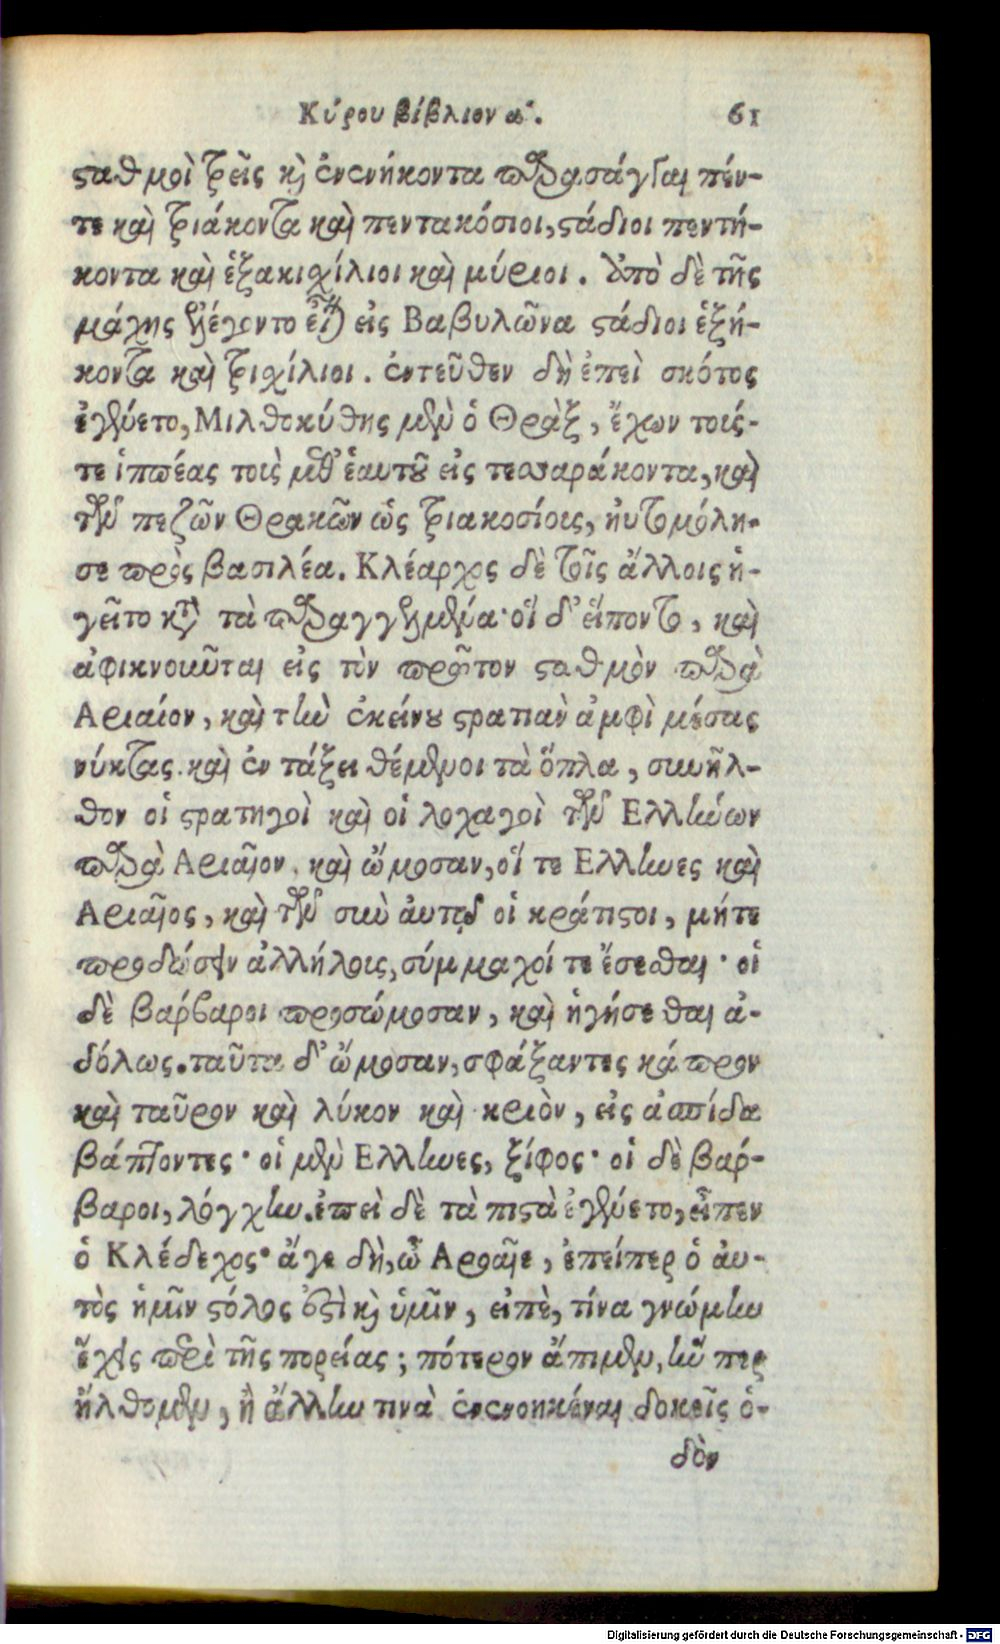 Κύρου βίβλιον α΄. 61
σαθμοὶ τρεῖς κὶ ἐνενήκοντα παρασάγγαι πέν-
τε καὶ τριάκοντα καὶ πεντακόσιοι, στάδιοι πεντή-
κοντα καὶ ἑξακιχίλιοι καὶ μύριοι. ἀπὸ δὲ τῆς
μάχης ἐλέγοντο εἶναι εἰς Βαβυλῶνα στάδιοι ἑξή-
κοντα καὶ τριχίλιοι. ἐντεῦθεν δὴ ἐπεὶ σκότος
ἐγένετο, Μιλθοκύθης μὲν ὁ Θρὰξ, ἔχων τούς-
τε ἱππέας τοὺς μεθ' ἑαυτοῦ εἰς τεσσαράκοντα, καὶ
τῶν πεζῶν Θρακῶν ὡς τριακοσίοις, ηὐτομόλη-
σε πρὸς βασιλέα. Κλέαρχος δὲ τοῖς ἄλλοις ἡ-
γεῖτο κατὰ τὰ παραγγελμένα· οἵ δ' εἵποντο, καὶ
ἀφικνοιοῦται εἰς τὸν πρῶτον σταθμὸν παρὰ
Αριαίον, καὶ τὴν ἐκείνου στρατιαὰν ἀμφὶ μέσας
νύκτας. καὶ ἐν τάξει θέμενοι τὰ ὅπλα, συνῆλ-
θον οἱ στρατηγοὶ καὶ οἱ λοχαγοὶ τῶν Ελλήνων
παρὰ Αριαῖον. καὶ ὤμοσαν, οἵ τε Ελληνες καὶ
Αριαῖος, καὶ τῶν σὺν ἀυτῷ οἱ κράτιστοι, μήτε
προδώσειν ἀλλήλοις, σύμμαχοί τε ἔσεσθαι· οἱ
δὲ βάρβαροι προσώμοσαν, καὶ ἡγήσεσθαι ἀ-
δόλως. ταῦτα δ' ὤμοσαν, σφάξαντες κάπρον
καὶ ταῦρον καὶ λύκον καὶ κριὸν, εἰς ἀσπίδα
βάπτοντες· οἱ μὲν Ελληνες, ξίφος· οἱ δὲ βάρ-
βαροι, λόγχην. ἐπεὶ δὲ τὰ πιστὰ ἐγένετο, εἶπεν
ὁ Κλέδεχος· ἄγε δὴ, ὦ Αρσαῖε, ἐπείπερ ὁ ἀυ-
τὸς ἡμῖν στόλος ἐστὶ κὶ ὑμῖν, εἰπὲ, τίνα γνώμην
ἔχεις περὶ τῆς πορείας; πότερον ἄπιμεν, ἥν περ
ἤλθομεν, ἢ ἄλλην τινὰ ἐννενοηκέναι δοκεῖς ὁ-
δὸν
Digitalisierung gefördert durch die Deutsche Forschungsgemeinschaft - DFG